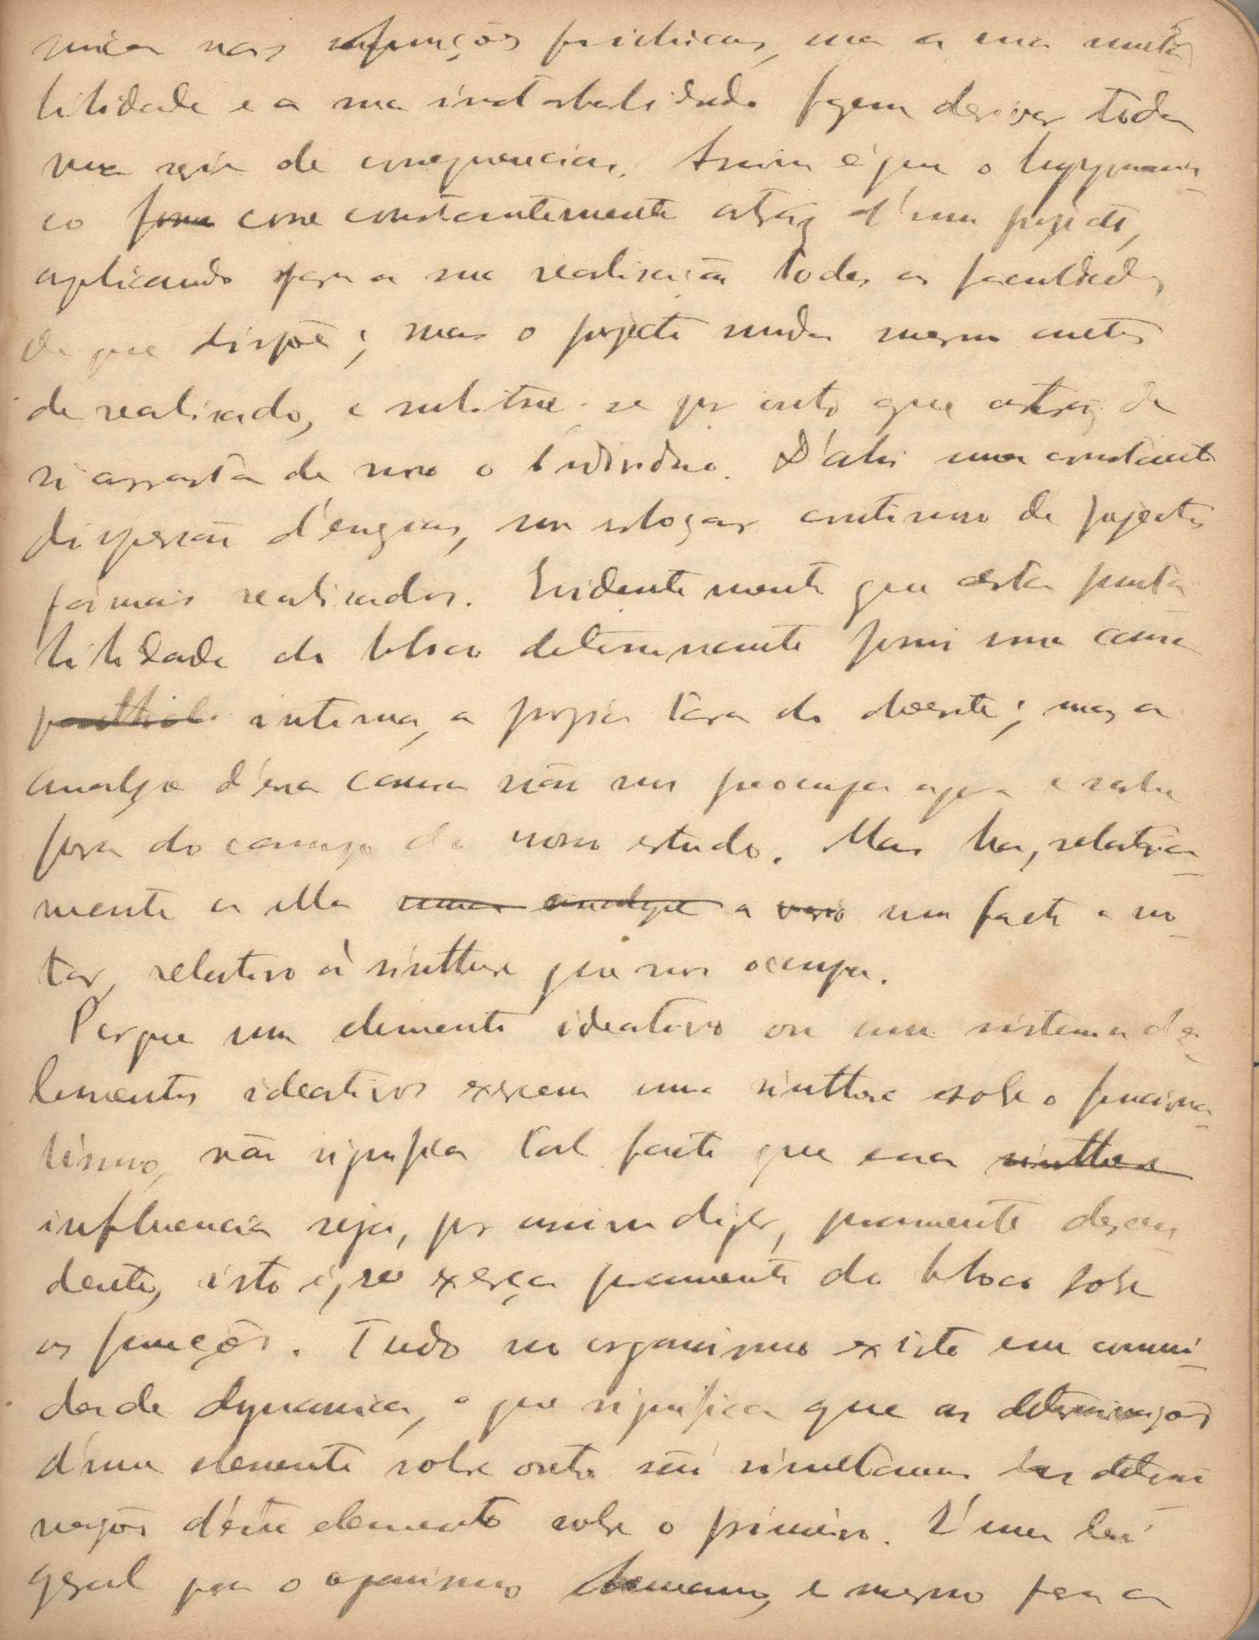 nas funções psichicas, mas a sua muta-
bilidade e a sua instabilidade fazem derivar toda
uma serie de consequencias. Assim é que o hypomania-
co ~~forma~~ corre constantemente atraz d'um projecto,
applicando para a sua realisação todas as faculdades
de que dispõe; mas o projecto muda mesmo antes
de realisado, e substitue-se por outro que atraz de
si arrasta de novo o individuo. D'ahi uma constante
dispersão d'energias, um esboçar continuo de projectos
jámais realisados. Evidentemente que esta muta-
bilidade do bloco determinante possui uma causa
interna, a propria tara do doente; mas a
analyse d'essa causa não nos preocupa agora e sahe
fora do campo do nosso estudo. Mas ha, relativa-
mente a ella ~~uma analyse~~ a um facto a no-
tar, relativo á sinttese que nos ocupa.
Porque um elemento ideativo ou um sistema de e-
lementos ideativos exercem uma sinttese sobre o funciona-
lismo, não significa tal facto que essa ~~sinttese~~
influencia seja, por assim dizer, puramente descen-
dente, isto é, se exerça puramente do bloco sobre
as funções. Tudo no organismo existe em comuni-
dade dynamica, o que significa que as determinações
d'um elemento sobre outro são simultaneas das determi-
nações d'este elemento sobre o primeiro. É uma lei
geral para o organismo ~~humano~~, e mesmo para